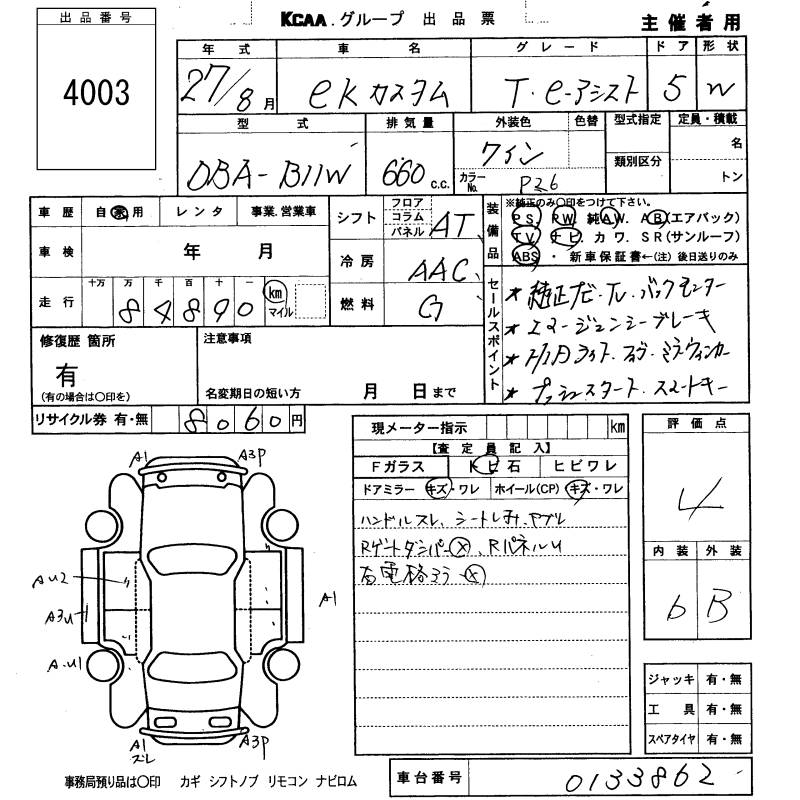 出品番号
4003
KCAA.グループ 出品票
主催者用
年式 車名 グレード ドア 形状
27/8月 eKカスタム T・e-アシスト 5 W
型式 排気量 外装色 色替 型式指定 定員・積載
DBA-B11W 660c.c. ワイン 名
類別区分
カラーNo. P26 トン
車歴 自家用 レンタ 事業.営業車
シフト フロア コラム パネル AT
車検 年 月
冷房 AAC
走行 十万 万 千 百 十 一
84890 km マイル
燃料 G
装備品
※純正のみ○印をつけて下さい。
PS. PW. 純AW. AB(エアバック)
TV. ナビ. カワ. SR(サンルーフ)
ABS ・ 新車保証書←(注)後日送りのみ
セールスポイント
*純正ナビ・TV・バックモニター
*エマージェンシーブレーキ
*プッシュスタート.スマートキー
修復歴 箇所
有
(有の場合は○印を)
注意事項
名変期日の短い方 月 日まで
リサイクル券 有・無 8060円
現メーター指示 km
【査定員記入】
Fガラス トビ石 ヒビワレ
ドアミラー キズ・ワレ ホイール(CP) キズ・ワレ
ハンドルスレ、シートし好、ヤブレ
Rゲートダンパー×、RパネルU
右電格ミラー×
評価点
4
内装 外装
6 B
ジャッキ 有・無
工具 有・無
スペアタイヤ 有・無
A1 A3P
AU2
A3U-1
A.U1
A1
A1
スレ
A3P
事務局預り品は○印 カギ シフトノブ リモコン ナビロム
車台番号 0133862